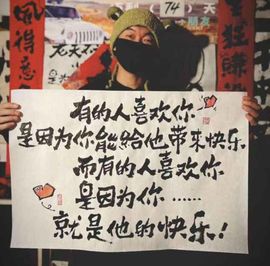 (74)天
朋友
有的人喜欢你
是因为你能给他带来快乐
而有的人喜欢你
是因为你……
就是他的快乐!